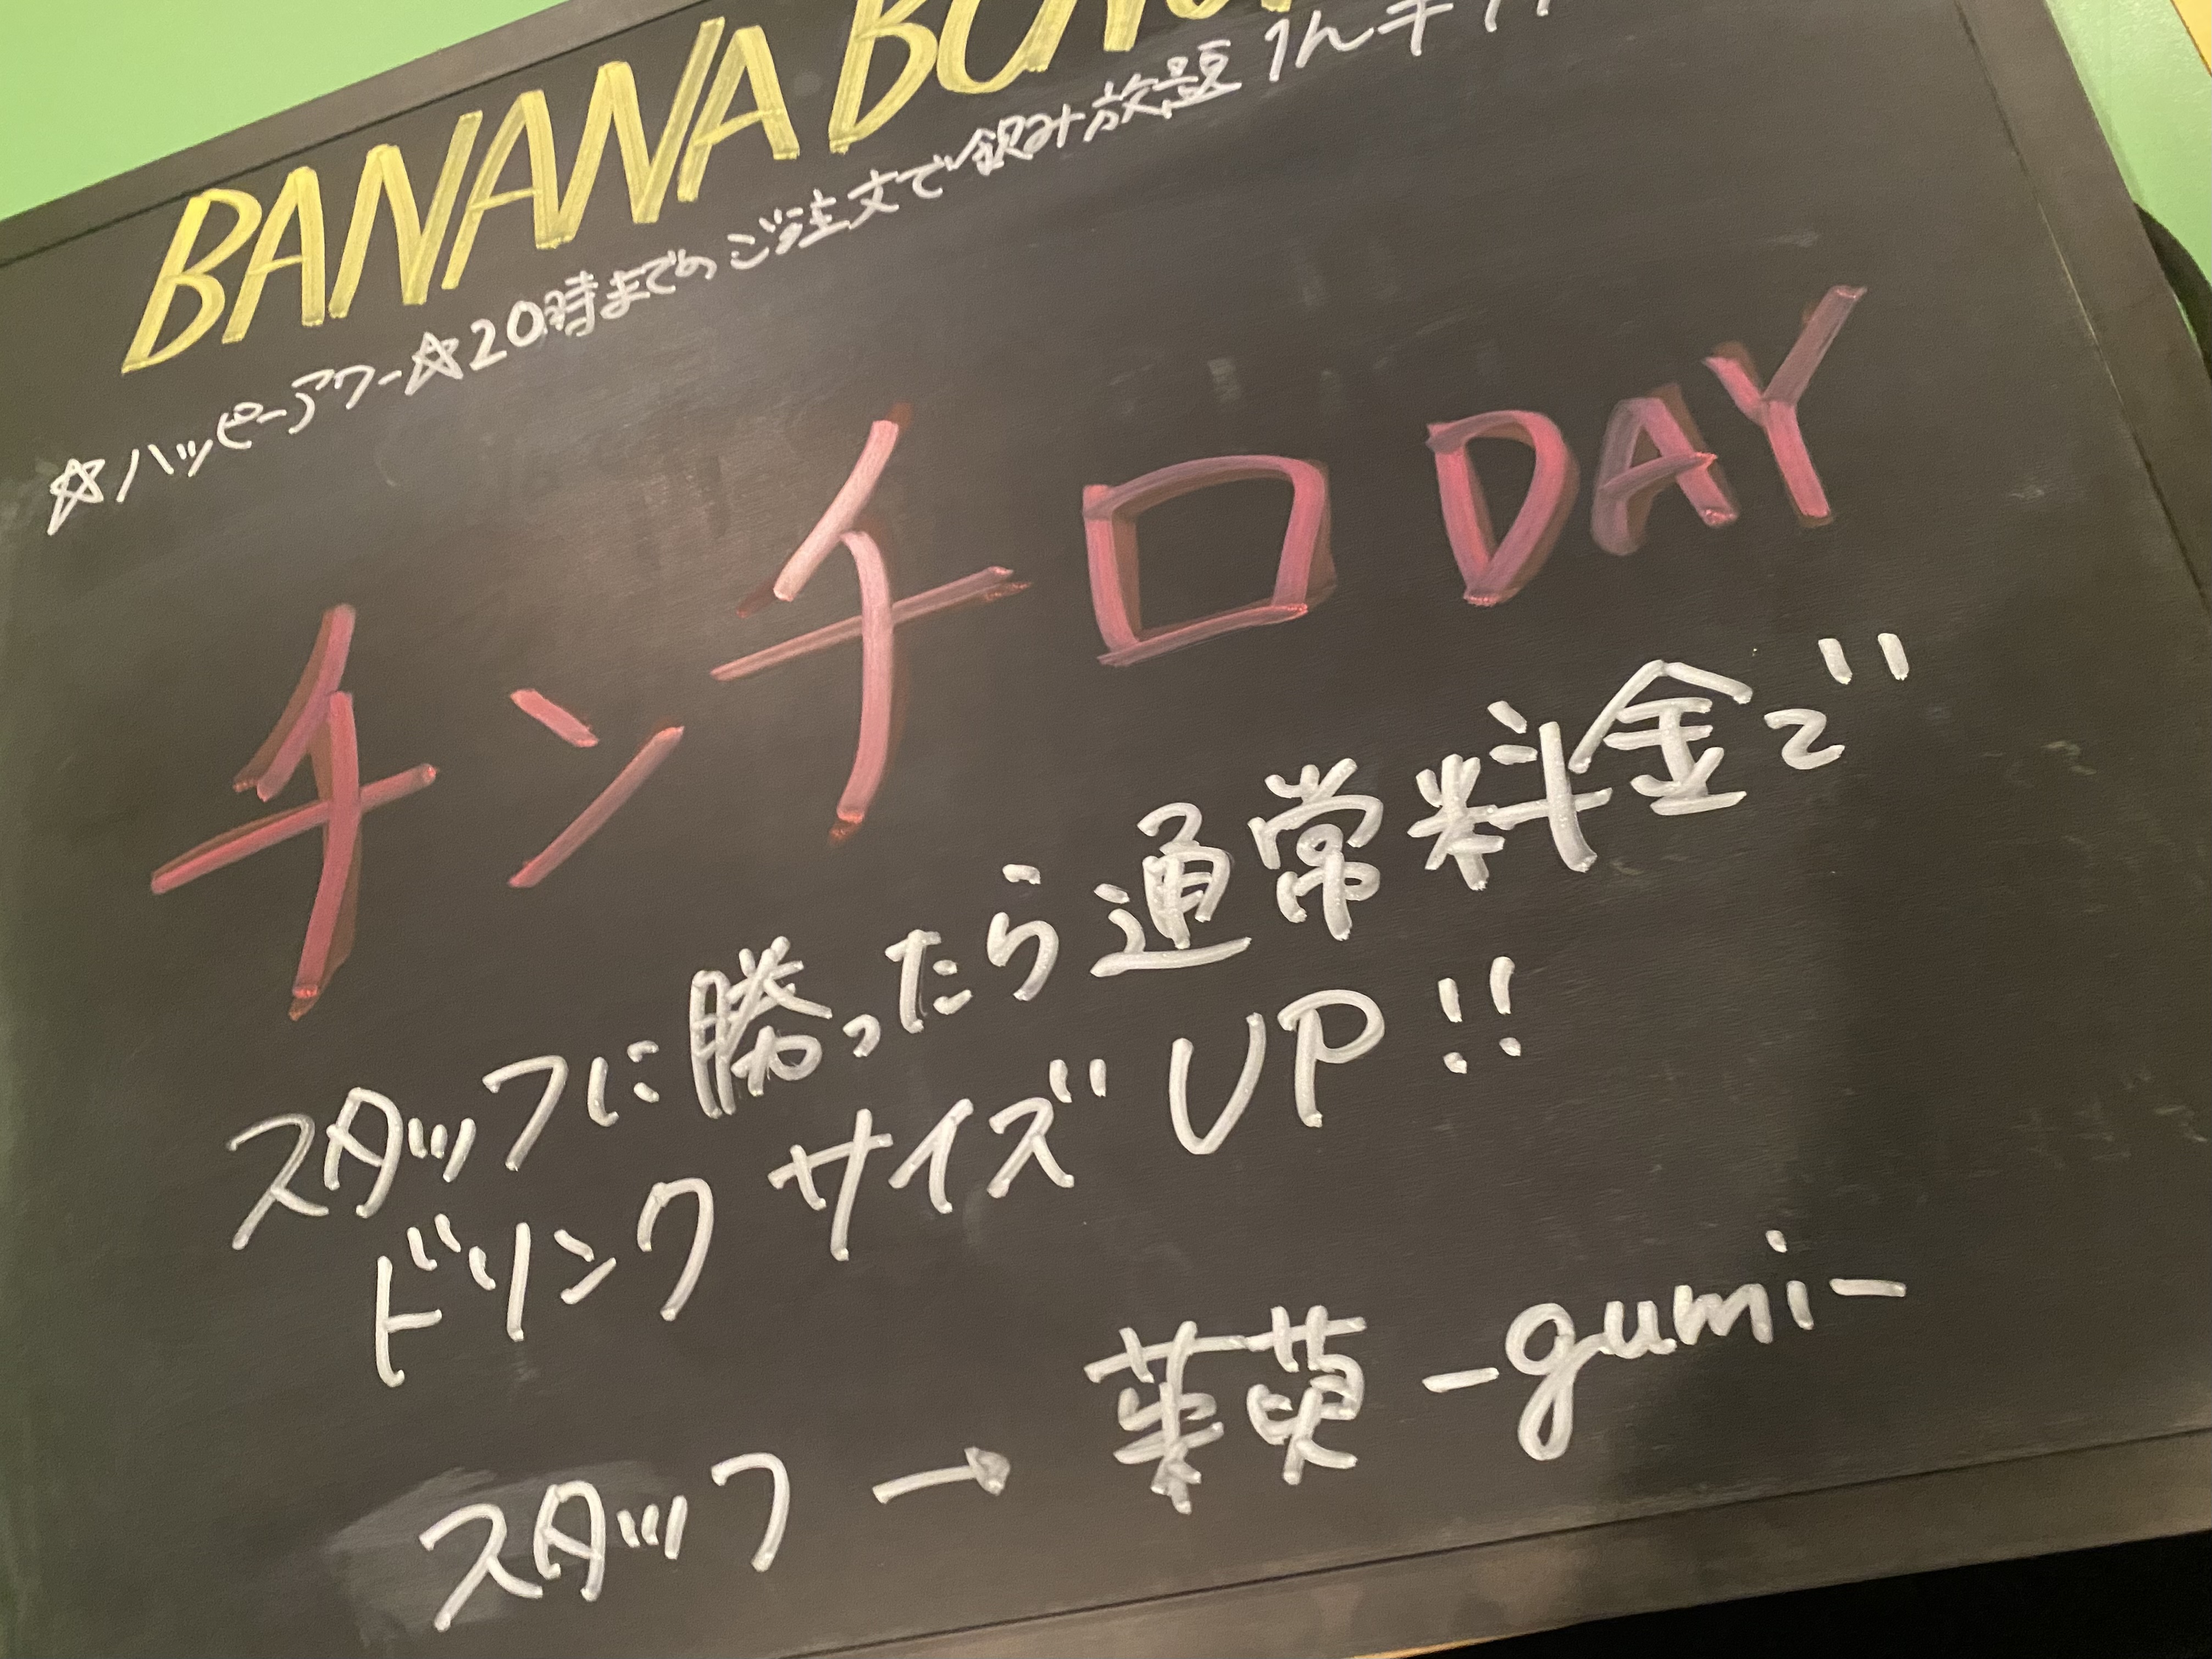 BANANA
☆ハッピーアワー☆20時までのご注文で飲み放題 1h
チンチロ DAY
スタッフに勝ったら通常料金で
ドリンク サイズ UP!!
スタッフ → 茱萸 -gumi-